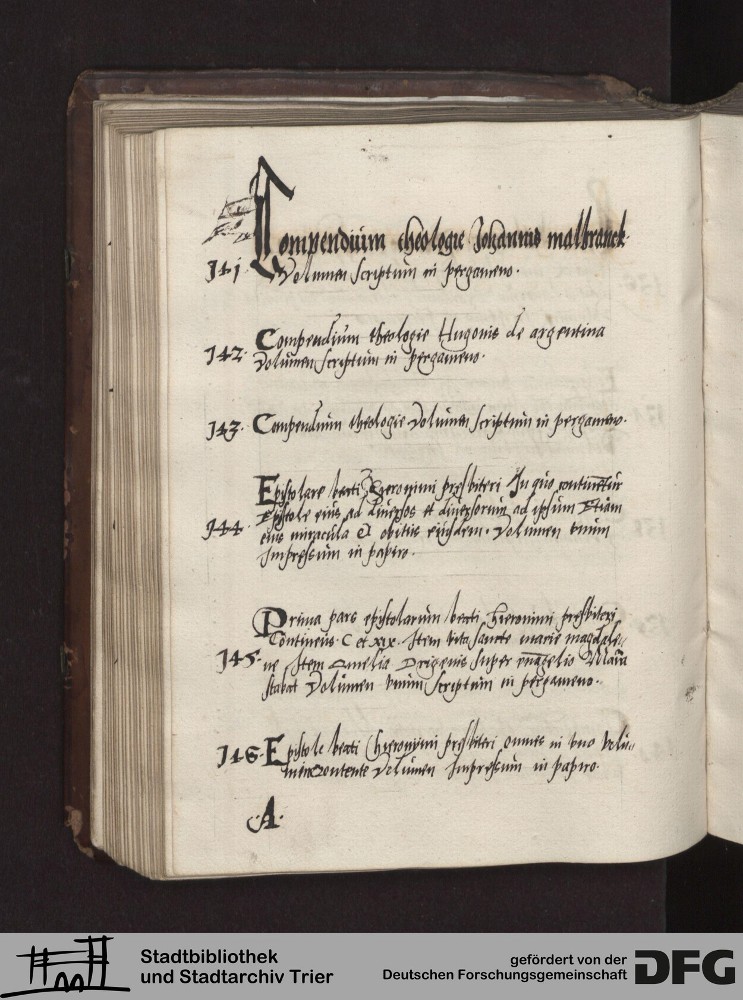 Compendium theologie Johannis malbranck.
141. Volumen scriptum in pergameno.
142. Compendium theologie Hugonis de argentina
Volumen scriptum in pergameno.
143. Compendium theologie Volumen scriptum in pergameno.
Epistolare beati Hieronimi presbiteri In quo continentur
Epistole eius ad diuersos et diuersorum ad ipsum Etiam
144. eius miracula et obitus eiusdem. Volumen vnum
Impressum in papiro.
Prima pars epistolarum beati Hieronimi presbiteri
Continens C et xix. Item vita sancte marie magdale-
145. ne Item Omelia Origenis super euangelio Maria
stabat Volumen vnum scriptum in pergameno.
146. Epistole beati Hieronimi presbiteri omnes in vno volu-
mine contente Volumen Impressum in papiro.
.A.
Stadtbibliothek
und Stadtarchiv Trier
gefördert von der
Deutschen Forschungsgemeinschaft
DFG